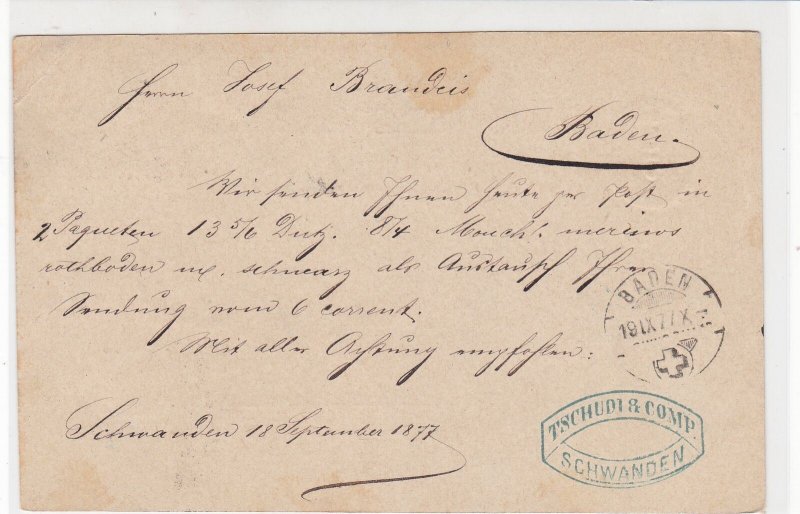 Herrn Josef Brandeis
Baden.
Wir senden Ihnen heute per Post in
2 Paqueten 13 5/6 Dutz. 8/4 Mouch. merinos
rothboden m. schwarz als Austausch Ihrer
Sendung vom 6 corrent.
Mit aller Achtung empfohlen:
Schwanden 18 September 1877
BADEN
19 IX 77 X
TSCHUDI & COMP.
SCHWANDEN